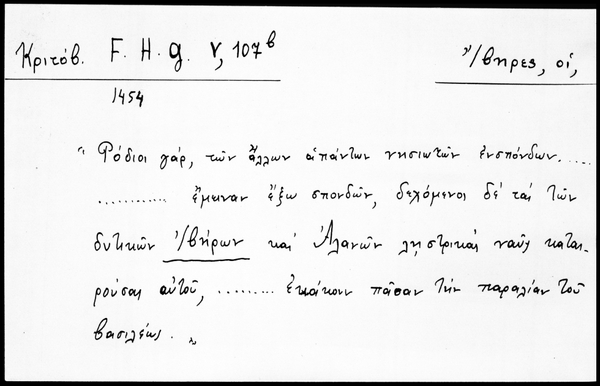 Κριτόβ. F. H. g. V, 107ᵇ
Ἴβηρες, οἱ,
1454
"Ρόδιοι γάρ, τῶν ἄλλων ἁπάντων νησιωτῶν ἐνσπόνδων.....
............ ἔμειναν ἔξω σπονδῶν, δεχόμενοι δέ ταὶ τῶν
δυτικῶν Ἰβήρων καὶ Ἀλανῶν λῃστρικὰς ναῦς καται-
ρούσας αὐτοῦ, ......... ἐκάκουν πᾶσαν τὴν παραλίαν τοῦ
βασιλέως. "